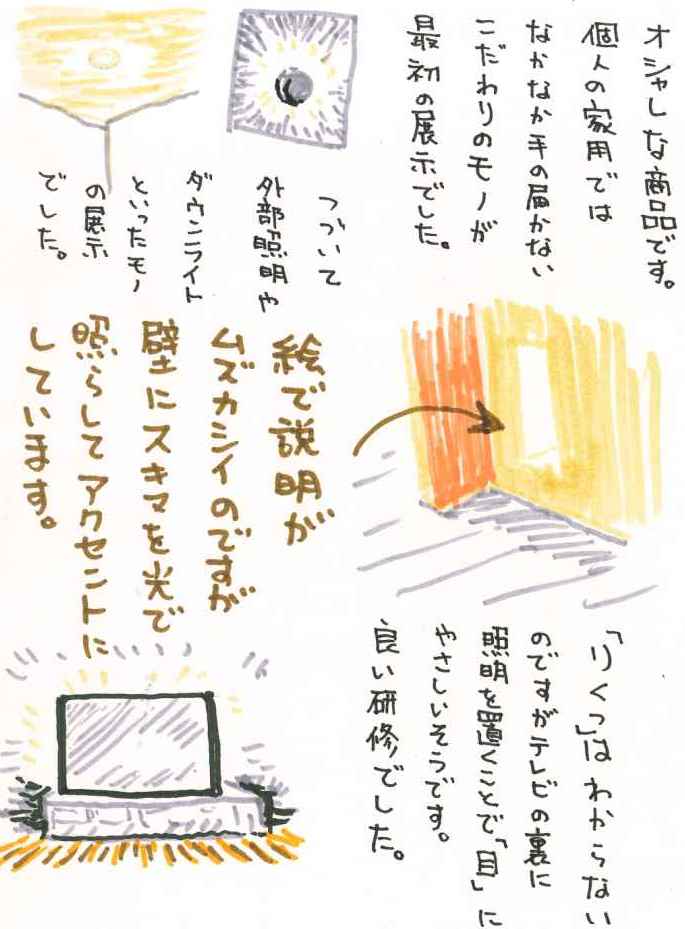 オシャレな商品です。
個人の家用では
なかなか手の届かない
こだわりのモノが
最初の展示でした。
つづいて
外部照明や
ダウンライト
といったモノ
の展示
でした。
絵で説明が
ムズカシイのですが
壁にスキマを光で
照らしてアクセントに
しています。
「りくつ」はわからない
のですがテレビの裏に
照明を置くことで「目」に
やさしいそうです。
良い研修でした。